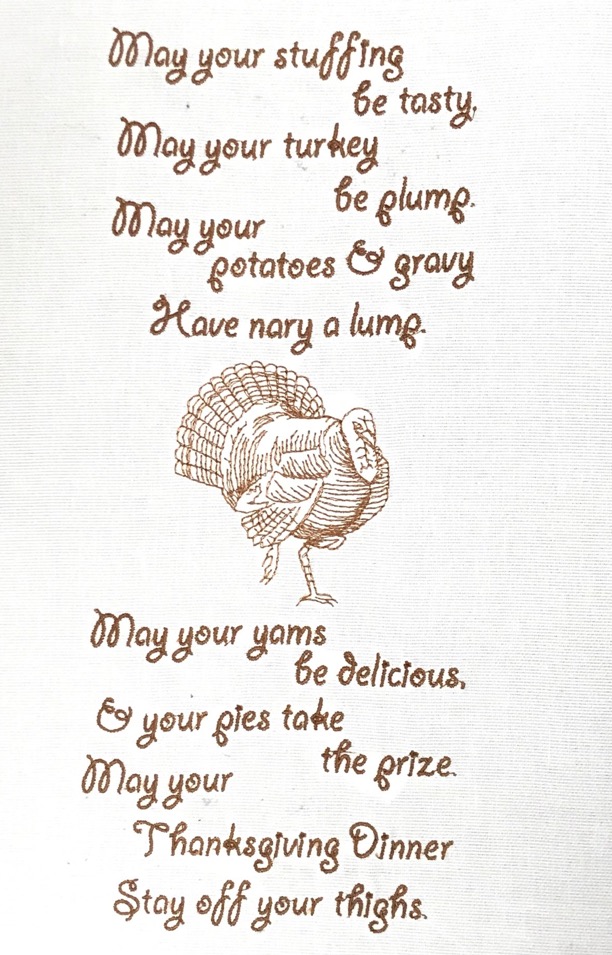 May your stuffing
be tasty,
May your turkey
be plump.
May your
potatoes & gravy
Have nary a lump.
May your yams
be delicious,
& your pies take
the prize.
May your
Thanksgiving Dinner
Stay off your thighs.